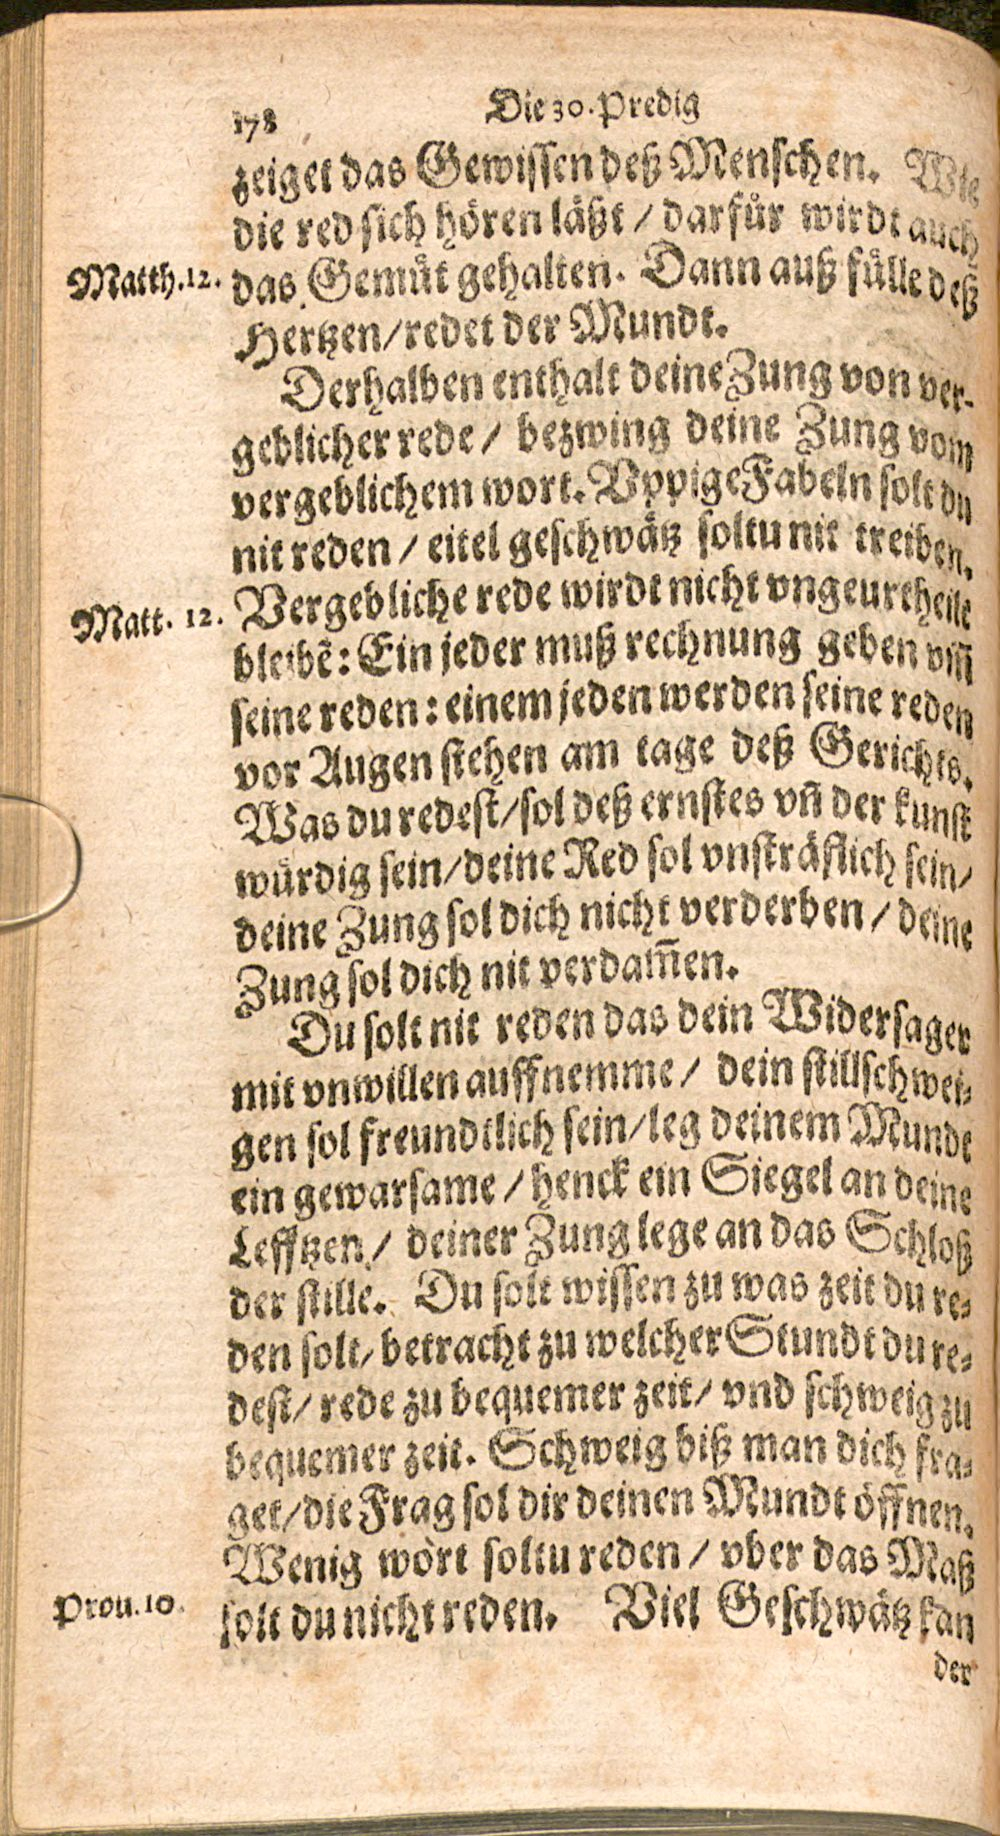 178 Die 30. Predig
zeiget das Gewissen deß Menschen. Wie
die red sich hören läßt / darfůr wirdt auch
Matth. 12. das Gemůt gehalten. Dann auß fülle deß
Hertzen/redet der Mundt.
Derhalben enthalt deine Zung von ver-
geblicher rede / bezwing deine Zung vom
vergeblichem wort. Vppige Fabeln solt du
nit reden / eitel geschwätz soltu nit treiben.
Matt. 12. Vergebliche rede wirdt nicht vngeurtheilt
bleibẽ: Ein jeder muß rechnung geben vm̃
seine reden: einem jeden werden seine reden
vor Augen stehen am tage deß Gerichts.
Was du redest/sol deß ernstes vñ der kunst
würdig sein/deine Red sol vnsträflich sein/
deine Zung sol dich nicht verderben / deine
Zung sol dich nit verdam̃en.
Du solt nit reden das dein Widersager
mit vnwillen auffnemme / dein stillschwei-
gen sol freundtlich sein/leg deinem Mundt
ein gewarsame / henck ein Siegel an deine
Lefftzen / deiner Zung lege an das Schloß
der stille. Du solt wissen zu was zeit du re-
den solt/ betracht zu welcher Stundt du re-
dest/ rede zu bequemer zeit/ vnd schweig zu
bequemer zeit. Schweig biß man dich fra-
get/die Frag sol dir deinen Mundt öffnen.
Wenig wört soltu reden / vber das Maß
Prou. 10. solt du nicht reden. Viel Geschwätz kan
der